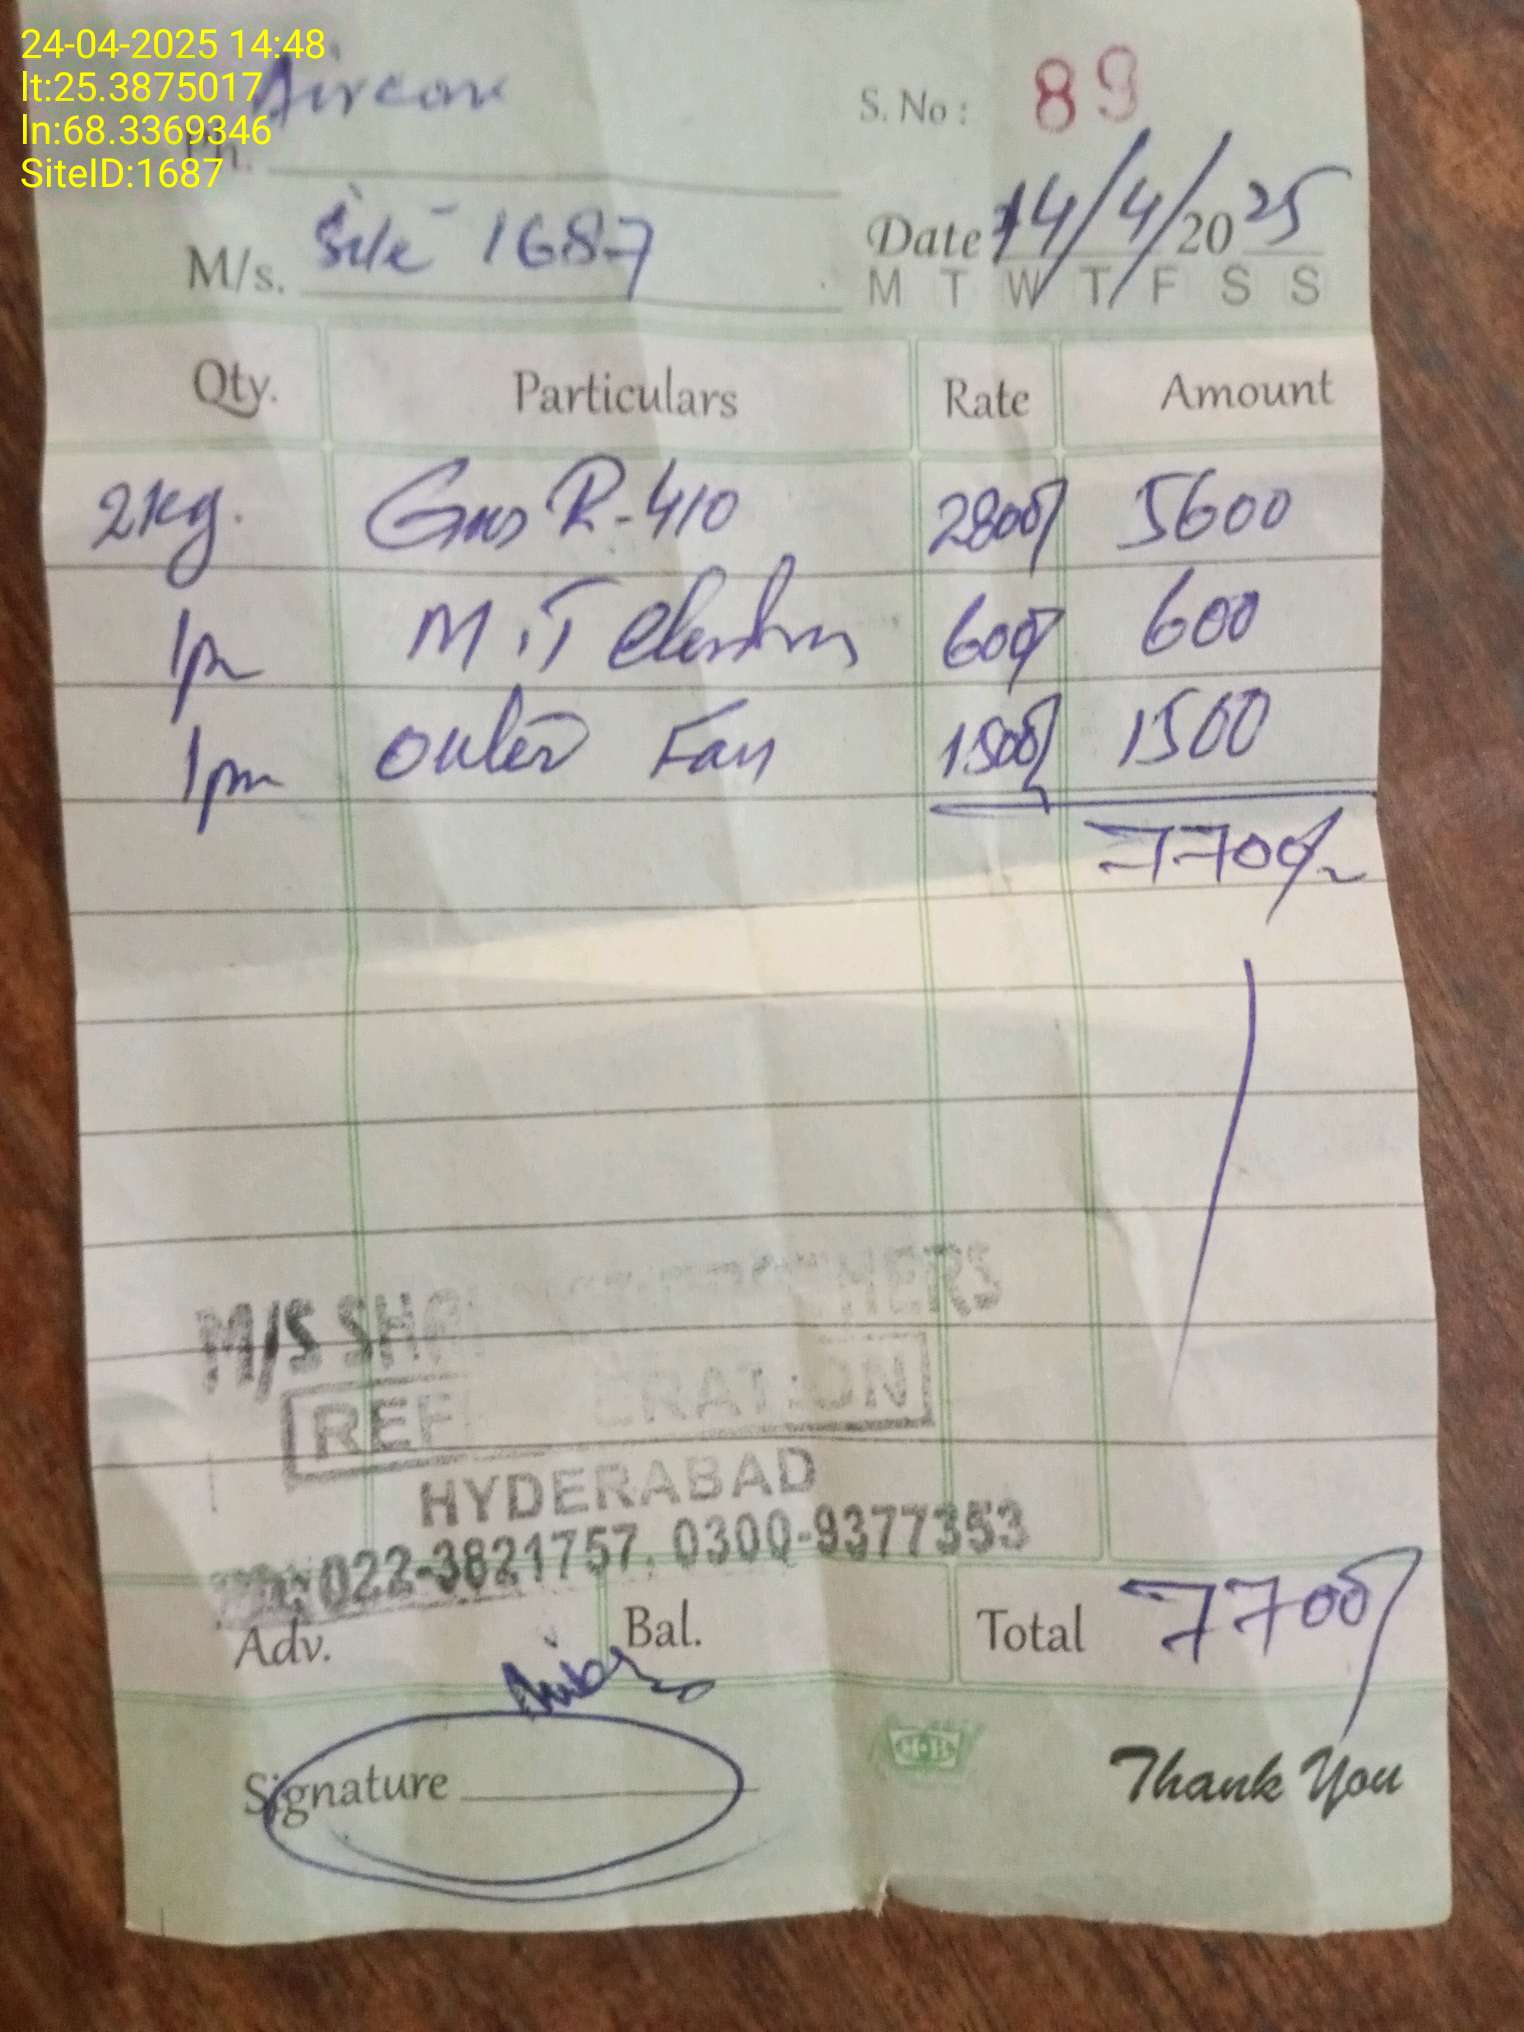 24-04-2025 14:48
lt:25.3875017
ln:68.3369346
SiteID:1687
Aircon
S. No: 89
Ph.
M/s. Site 1687
Date 14/4/2025
M T W T F S S
Qty. Particulars Rate Amount
2kg. Gas R-410 2800/ 5600
M.T 600/ 600
outer Fan 1500/ 1500
7700/-
M/S
HYDERABAD
022-3821757, 0300-9377353
Adv. Bal. Total 7700/
Signature
Thank You